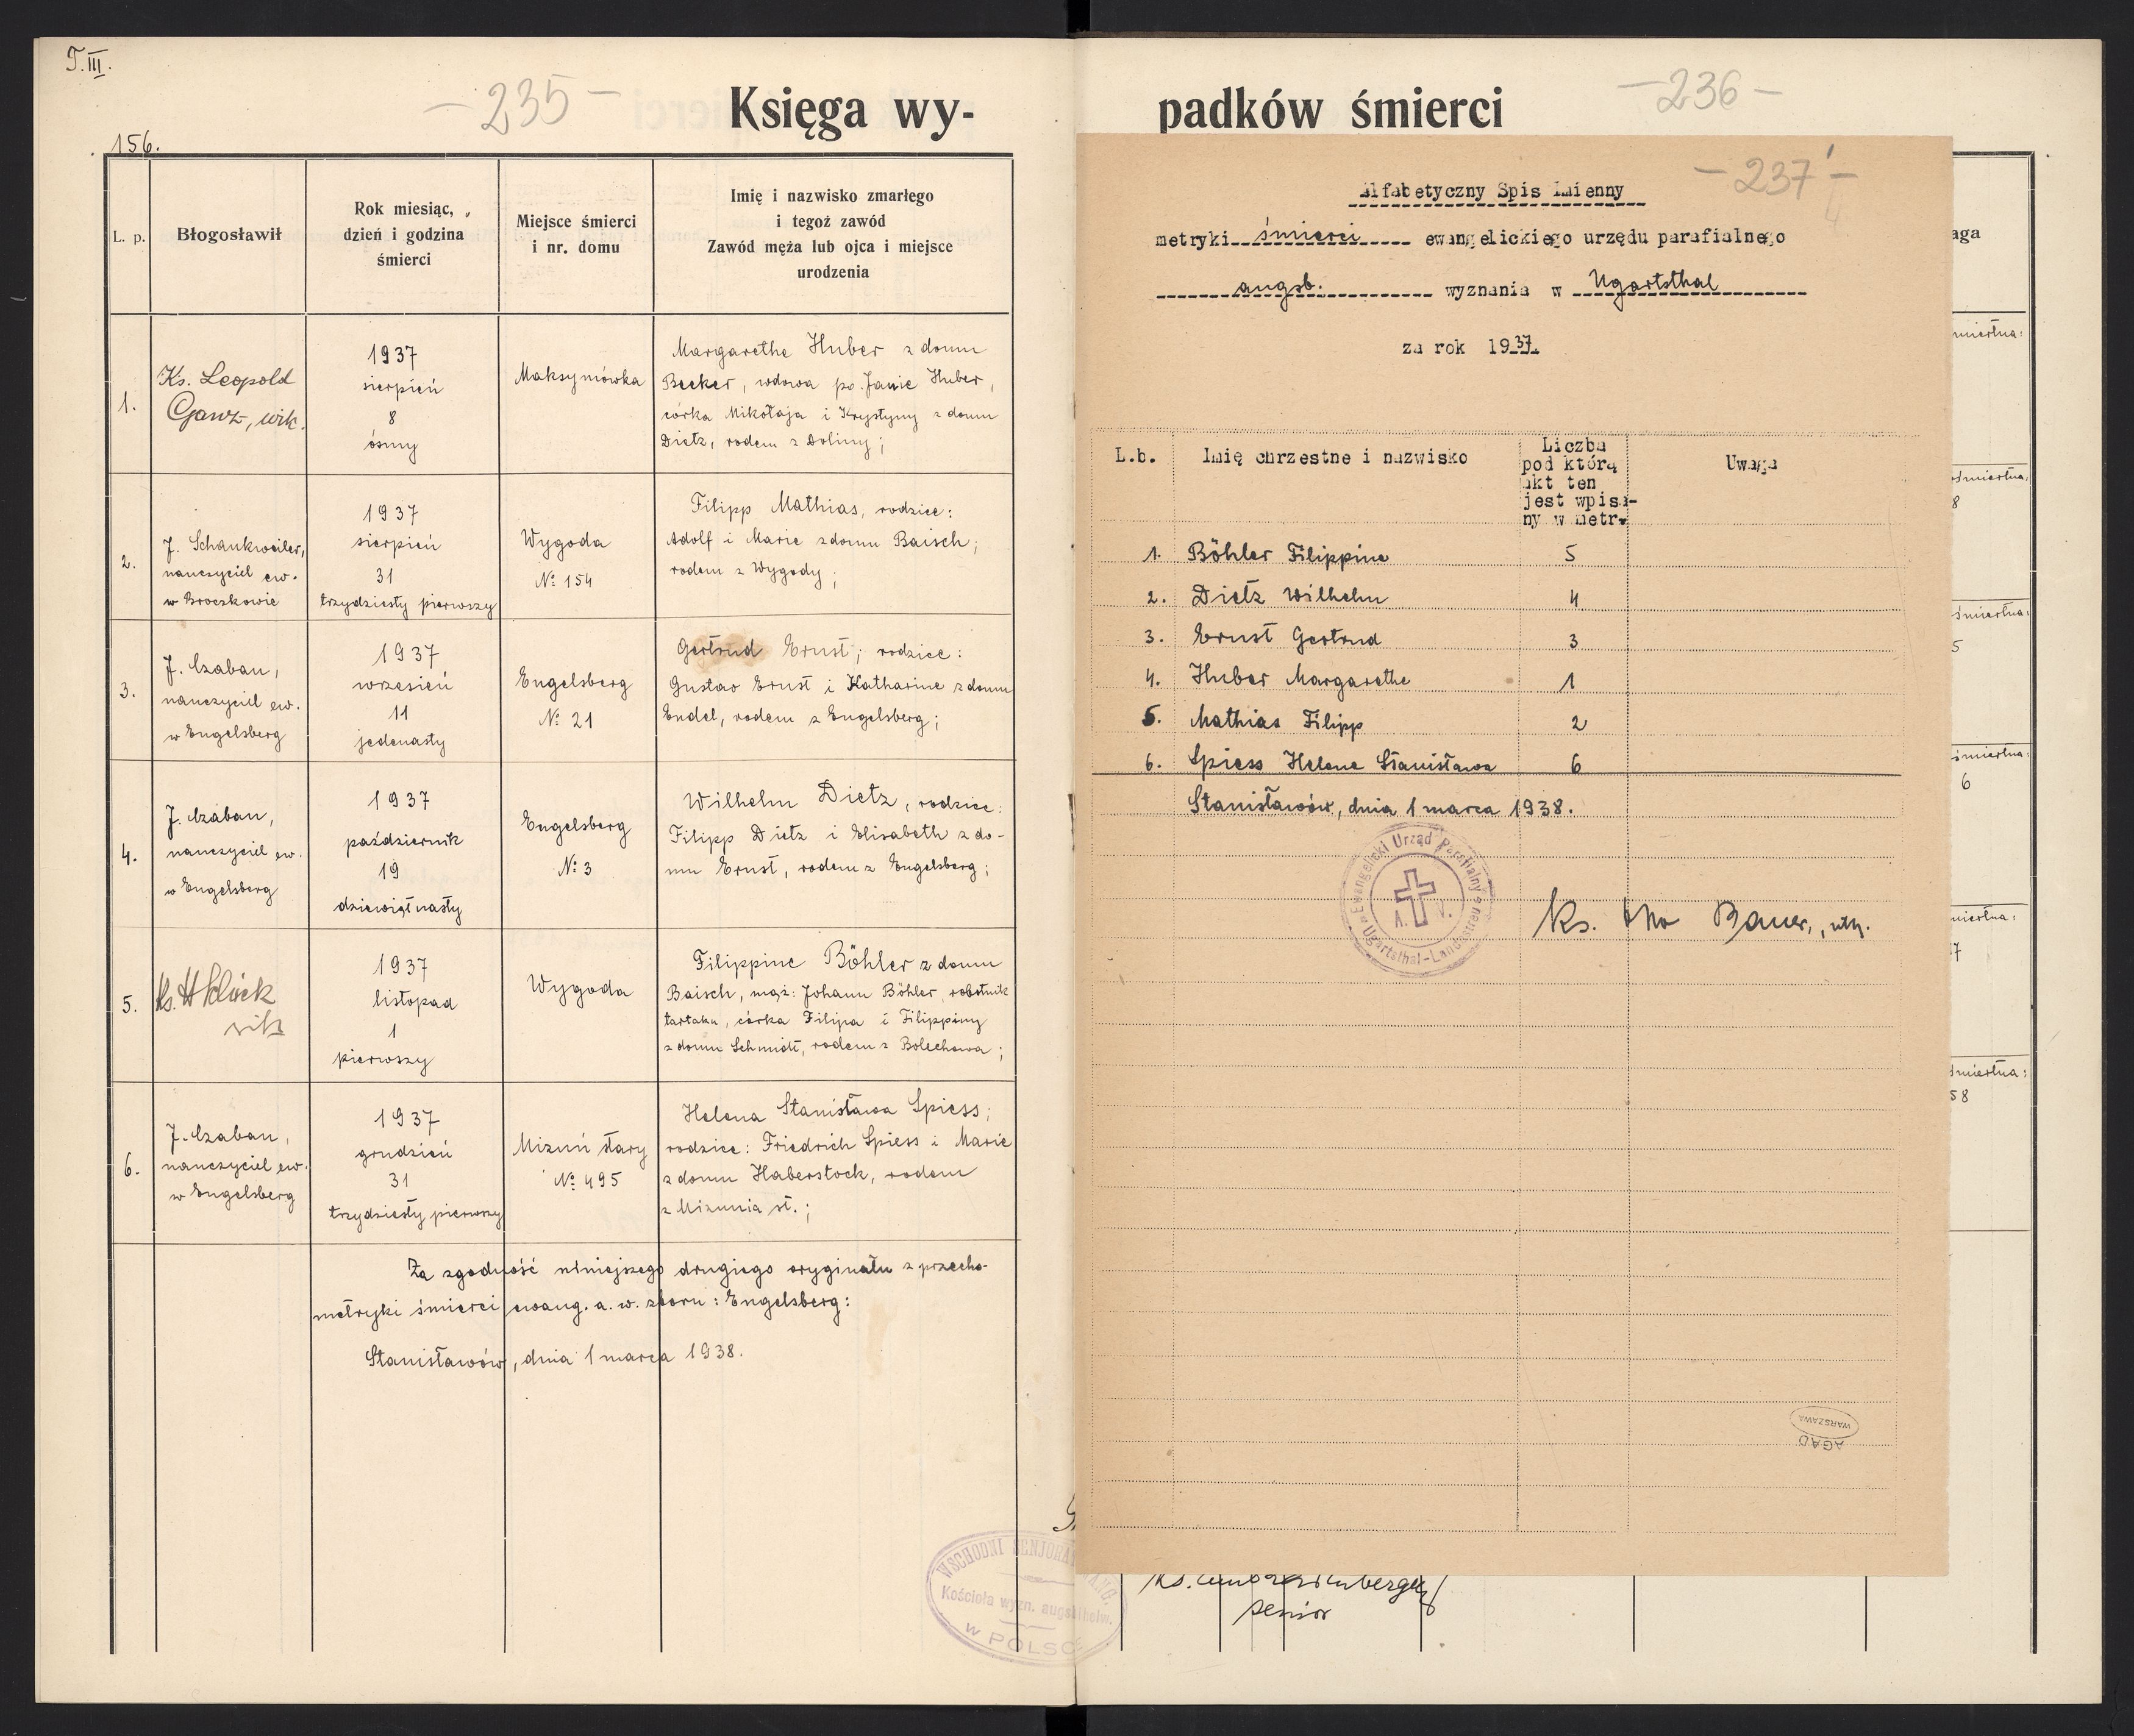 T. III.
156.
— 235 —
Księga wy-
L. p.
Błogosławił
Rok miesiąc,
dzień i godzina
śmierci
Miejsce śmierci
i nr. domu
Imię i nazwisko zmarłego
i tegoż zawód
Zawód męża lub ojca i miejsce
urodzenia
1.
Ks. Leopold
Gawz, wik.
1937
sierpień
8
ósmy
Maksymówka
Margarethe Huber z domu
Becker, wdowa po Janie Huber,
córka Mikołaja i Krystyny z domu
Dietz, rodem z Doliny;
2.
J. Schankweiler,
nauczyciel ew.
w Broczkowie
1937
sierpień
31
trzydziesty pierwszy
Wygoda
№ 154
Filipp Mathias, rodzice:
Adolf i Marie z domu Baisch;
rodem z Wygody;
3.
J. Czaban,
nauczyciel ew.
w Engelsberg
1937
wrzesień
11
jedenasty
Engelsberg
№ 21
Gertrud Ernst; rodzice:
Gustav Ernst i Katharine z domu
Endel, rodem z Engelsberg;
4.
J. Czaban,
nauczyciel ew.
w Engelsberg
1937
październik
19
dziewiętnasty
Engelsberg
№ 3
Wilhelm Dietz, rodzice:
Filipp Dietz i Elisabeth z do-
mu Ernst, rodem z Engelsberg;
5.
Ks.
wik
1937
listopad
1
pierwszy
Wygoda
Filippine Böhler z domu
Baisch, mąż: Johann Böhler, robotnik
tartaku, córka Filipa i Filippiny
z domu Schmidt, rodem z Bolechowa;
6.
J. Czaban,
nauczyciel ew.
w Engelsberg
1937
grudzień
31
trzydziesty pierwszy
Mizuń stary
№ 495
Helena Stanisława Spiess;
rodzice: Friedrich Spiess i Marie
z domu Haberstock, rodem
z Mizunia st.;
Za zgodność niniejszego drugiego oryginału z przecho-
metryki śmierci ewang. a. w. zboru: Engelsberg:
Stanisławów, dnia 1 marca 1938.
WSCHODNI SENJORAT
Kościoła wyzn. augsb. i helw.
w POLSCE
padków śmierci
— 236 —
— 237 —
Alfabetyczny Spis Imienny
metryki śmierci ewangelickiego urzędu parafialnego
augsb. wyznania w Ugartsthal
za rok 1937.
L.b.
Imię chrzestne i nazwisko
Liczba
pod którą
akt ten
jest wpisa-
ny w metr.
Uwaga
1. Böhler Filippine 5
2. Dietz Wilhelm 4
3. Ernst Gertrud 3
4. Huber Margarethe 1
5. Mathias Filipp 2
6. Spiess Helene Stanisława 6
Stanisławów, dnia 1 marca 1938.
Ewangelicki Urząd Parafialny
A. V.
w Ugartsthal-Landestreu
Ks. Bauer,
AGAD
WARSZAWA
senior
aga
śmiertna:
8
śmiertna:
5
śmiertna:
6
7
śmiertna:
58